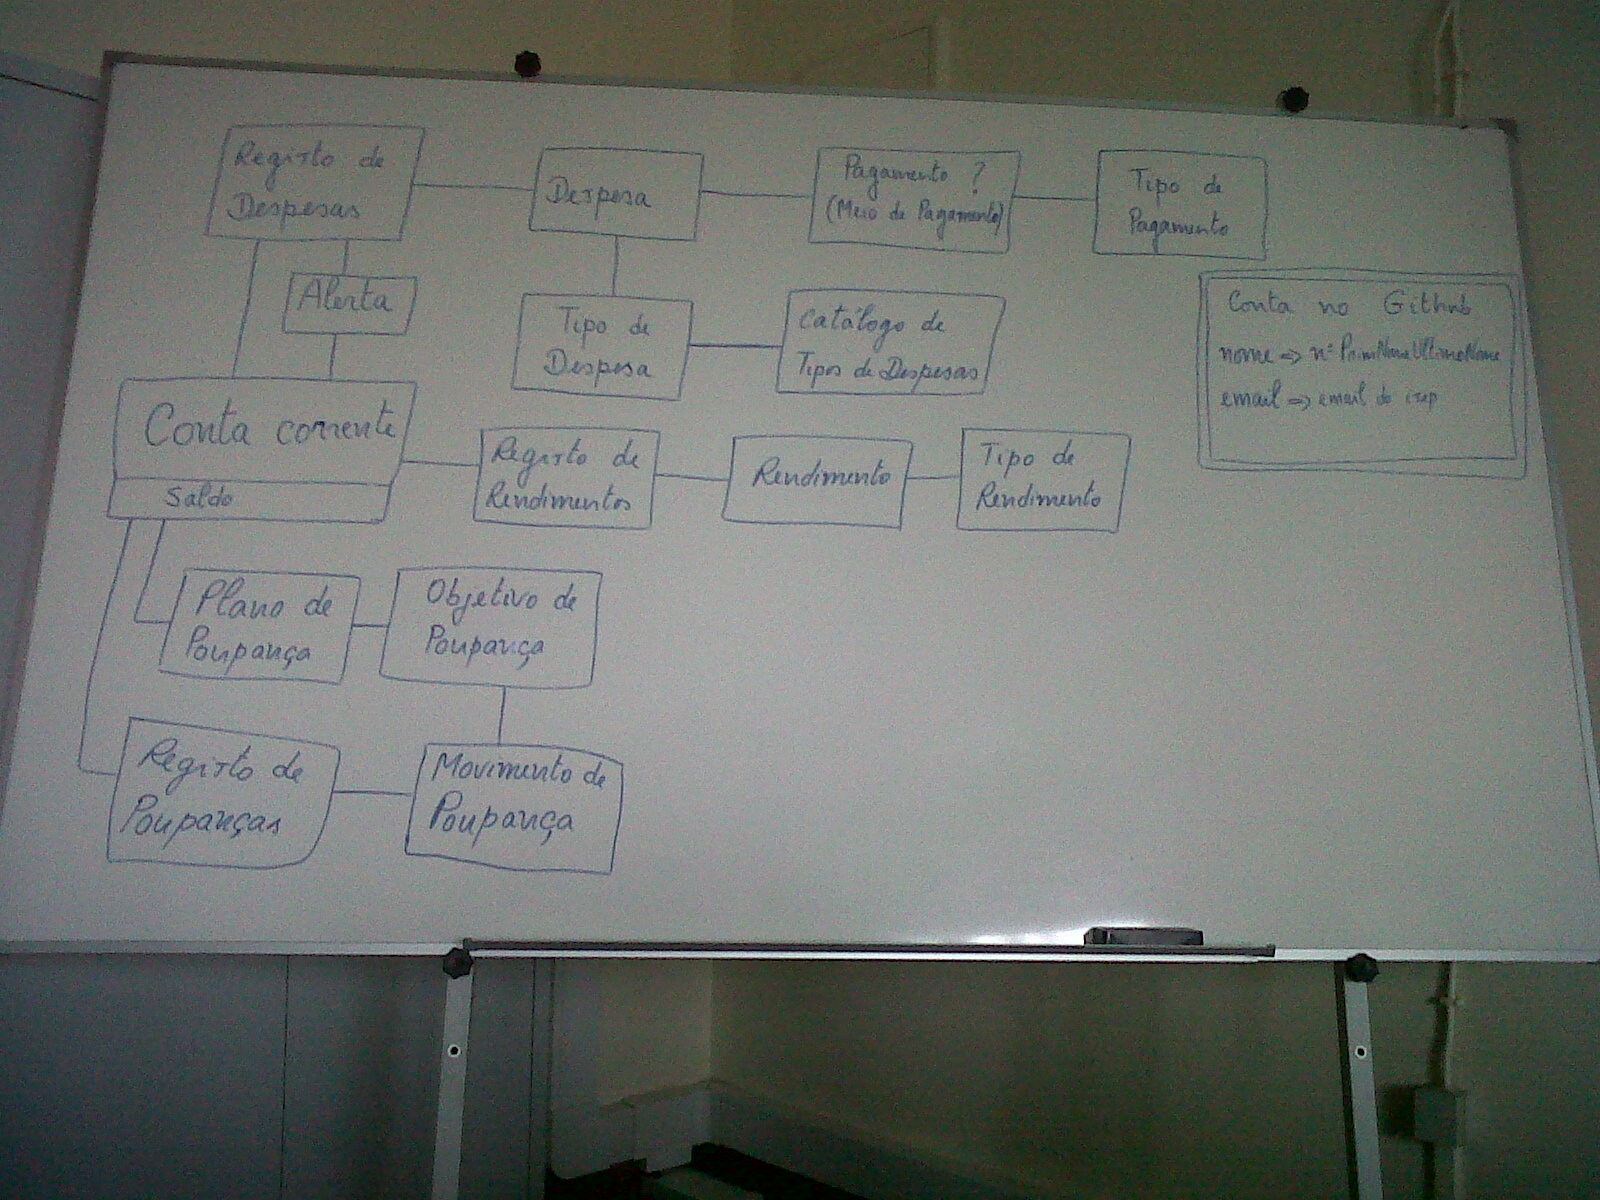 Registo de
Despesas
Despesa
Pagamento ?
(Meio de Pagamento)
Tipo de
Pagamento
Alerta
Tipo de
Despesa
Catálogo de
Tipos de Despesas
Conta no Github
nome => nº PrimNomeUltimoNome
email => email do isep
Conta corrente
Saldo
Registo de
Rendimentos
Rendimento
Tipo de
Rendimento
Plano de
Poupança
Objetivo de
Poupança
Registo de
Poupanças
Movimento de
Poupança